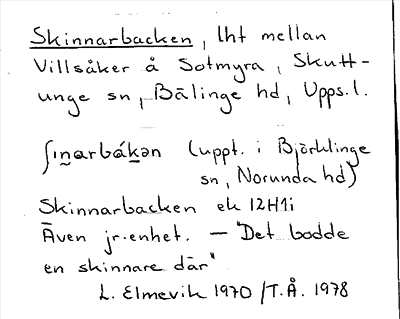 Skinnarbacken, lht mellan
Villsåker å Sotmyra, Skutt-
unge sn, Bälinge hd, Upps.l.
ʃịṇarbák̠ən (uppt. i Björklinge
sn, Norunda hd)
Skinnarbacken ek 12H1i
Även jr.enhet. – "Det bodde
en skinnare där"
L. Elmevik 1970 /T.Å. 1978